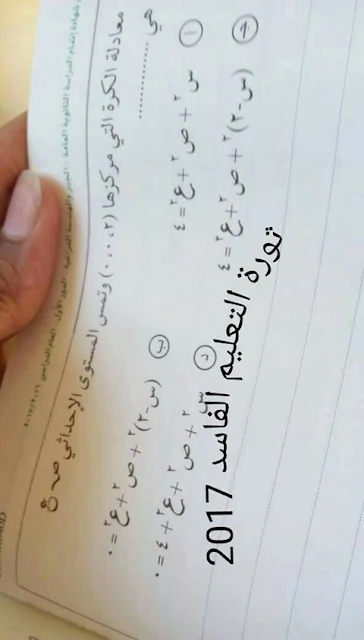 شهادة إتمام الدراسة الثانوية العامة - الجبر والهندسة الفراغية - الدور الأول - العام الدراسي ٢٠١٧/٢٠١٦
معادلة الكرة التي مركزها (٢، ٠، ٠) وتمس المستوى الإحداثي ص ع
هي ..............
أ س٢ + ص٢ + ع٢ = ٤
ب (س-٢)٢ + ص٢ + ع٢ = ٠
ج (س-٢)٢ + ص٢ + ع٢ = ٤
د س٢ + ص٢ + ع٢ + ٤ = ٠
ثورة التعليم الفاسد 2017